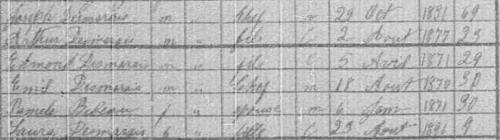 Joseph Desmarais m " Chef m 29 Oct 1831 69
Arthur Desmarais m " fils C 2 Aout 1877 23
Edmond Desmarais m " fils C 5 Avril 1871 29
Emil Desmarais m " Chef m 18 Aout 1870 30
Pamela Bibeau f " epouse m 6 Jan 1871 30
Laura Desmarais f " fille C 23 Aout 1891 9